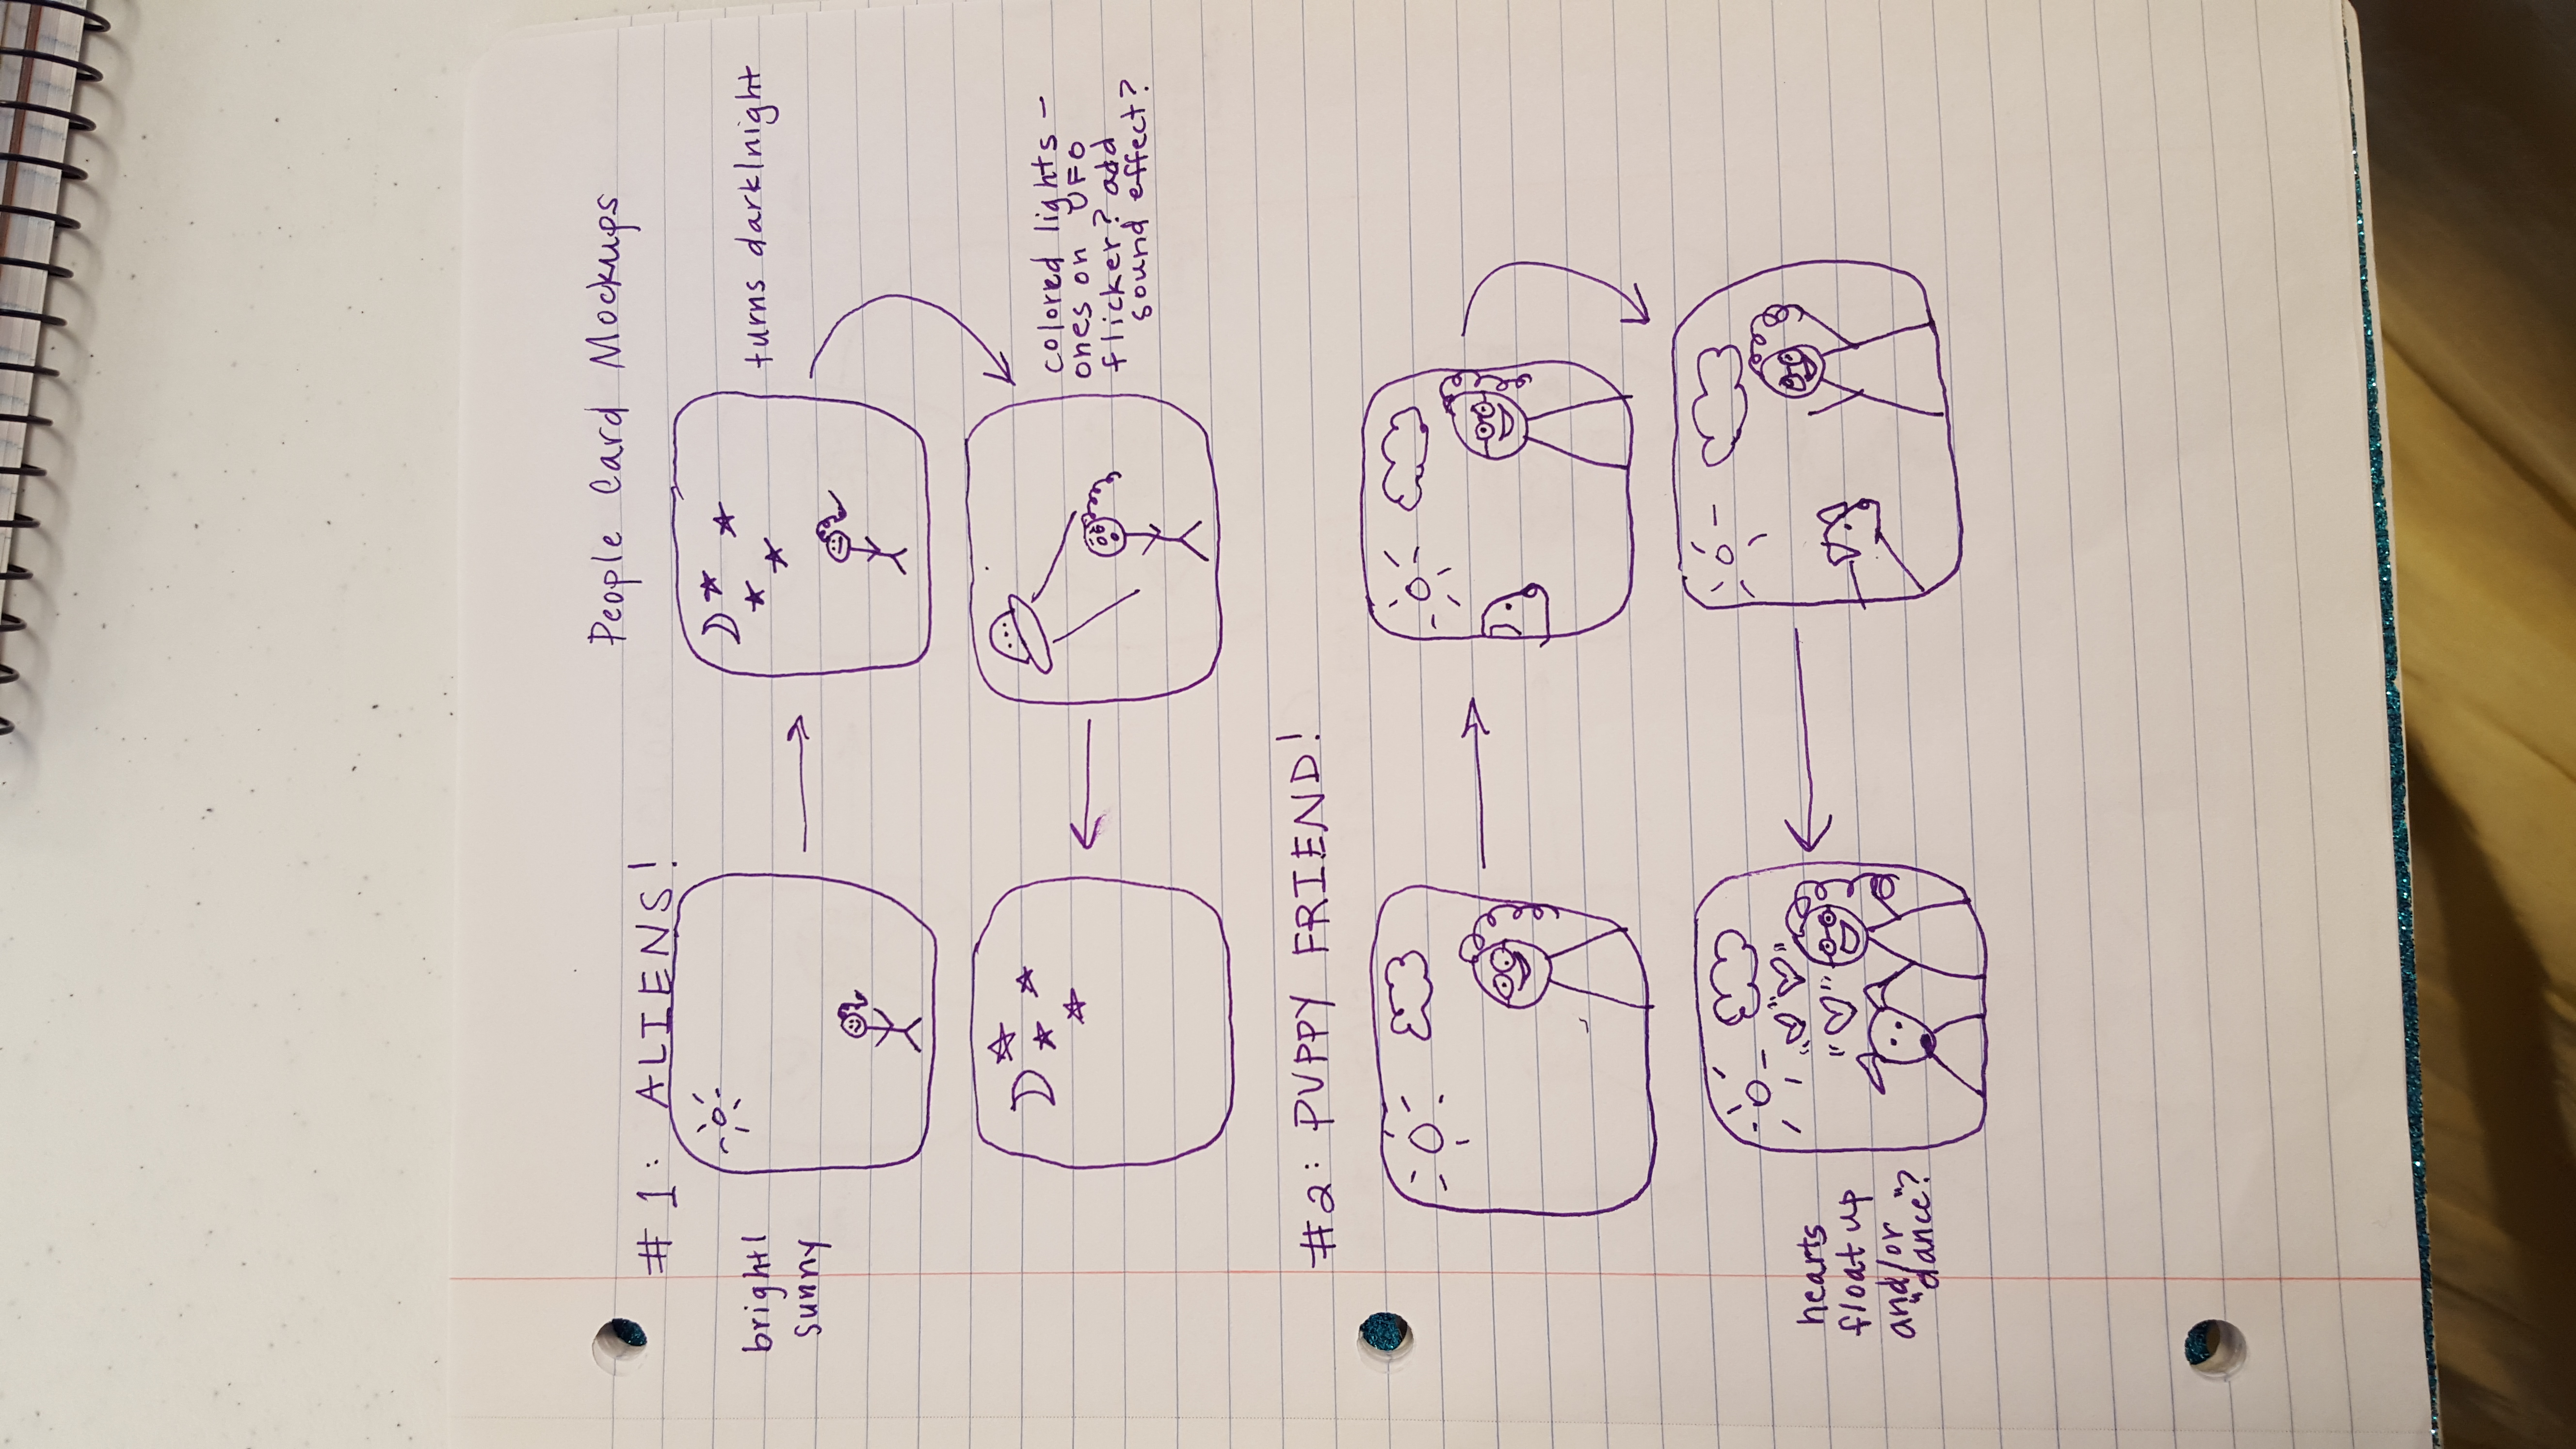 People Card Mockups
# 1: ALIENS!
bright/
sunny
turns dark/night
colored lights -
ones on UFO
flicker? add
sound effect?
#2: PUPPY FRIEND!
hearts
float up
and/or
"dance"?